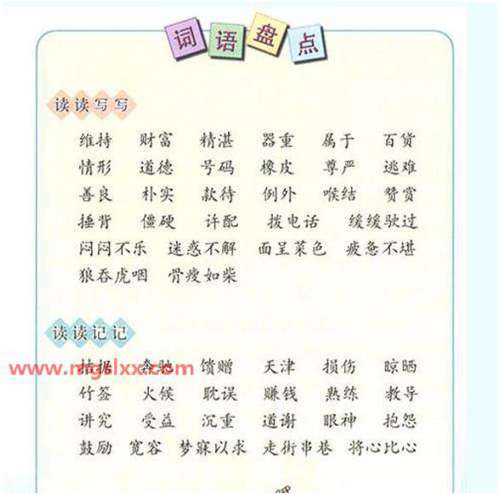 词语盘点
读读写写
维持 财富 精湛 器重 属于 百货
情形 道德 号码 橡皮 尊严 逃难
善良 朴实 款待 例外 喉结 赞赏
捶背 僵硬 许配 拨电话 缓缓驶过
闷闷不乐 迷惑不解 面呈菜色 疲惫不堪
狼吞虎咽 骨瘦如柴
读读记记
拮据 奔驰 馈赠 天津 损伤 晾晒
www.mgslxx.com
竹签 火候 耽误 赚钱 熟练 教导
讲究 受益 沉重 道谢 眼神 抱怨
鼓励 宽容 梦寐以求 走街串巷 将心比心